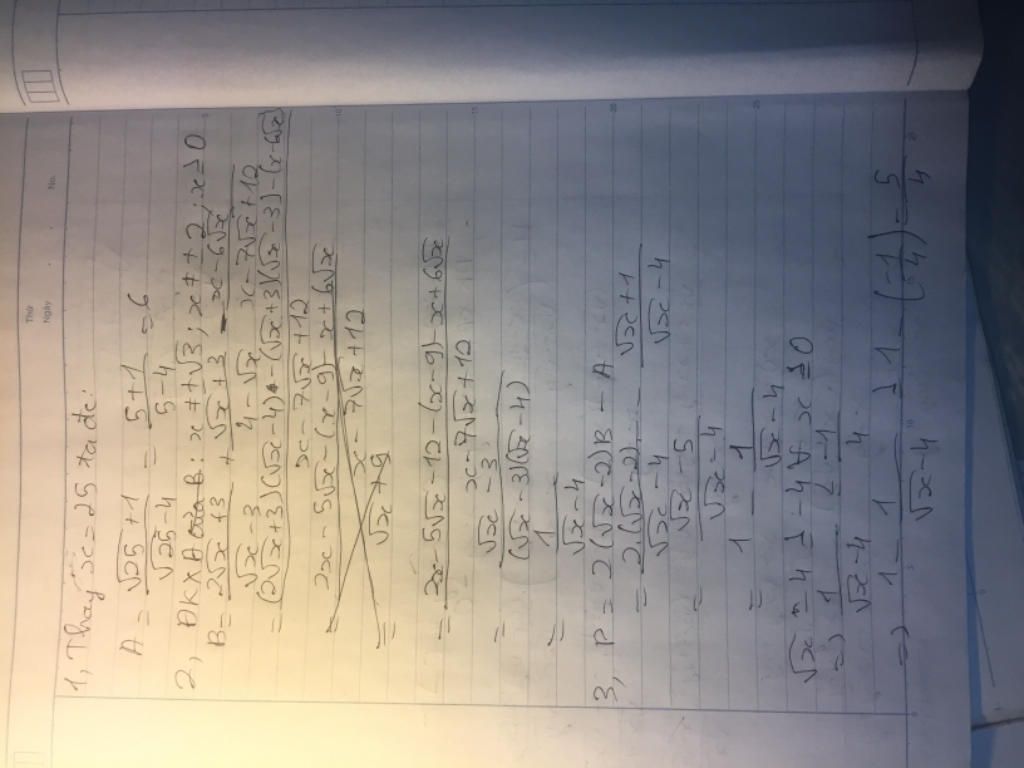 Thứ
Ngày
No.
1, Thay x = 25 ta đc:
A = (√25 + 1)/(√25 - 4) = (5 + 1)/(5 - 4) = 6
2, ĐKXĐ B: x ≠ ±√3; x ≠ ±2; x ≥ 0
B = (2√x + 3)/(√x - 3) + (√x + 3)/(4 - √x) - (x - 6√x)/(x - 7√x + 12)
= ((2√x + 3)(√x - 4) - (√x + 3)(√x - 3) - (x - 6√x))/(x - 7√x + 12)
= (2x - 5√x - (x - 9) - x + 6√x)/(x - 7√x + 12)
= √x + 9
= (2x - 5√x - 12 - (x - 9) - x + 6√x)/(x - 7√x + 12)
= (√x - 3)/((√x - 3)(√x - 4))
= 1/(√x - 4)
3, P = 2(√x - 2)B - A
= 2(√x - 2)/(√x - 4) - (√x + 1)/(√x - 4)
= (√x - 5)/(√x - 4)
= 1 - 1/(√x - 4)
√x - 4 ≥ -4 ∀ x ≥ 0
=> 1/(√x - 4) ≤ -1/4
=> 1 - 1/(√x - 4) ≥ 1 - (-1/4) = 5/4